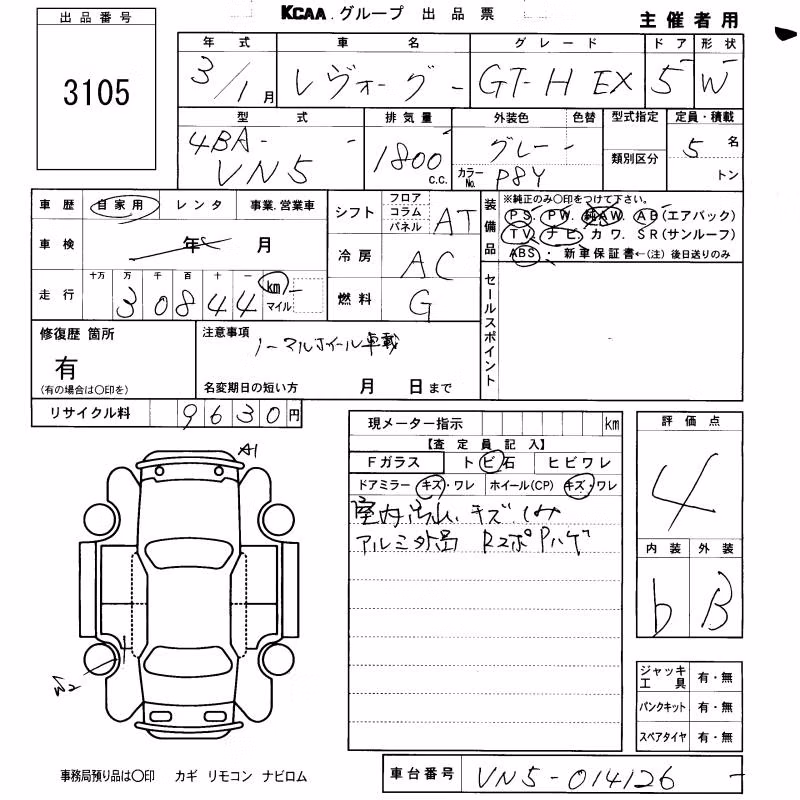 出品番号
3105
KCAA.グループ 出品票
主催者用
年式 車名 グレード ドア 形状
3/1月 レヴォーグ GT-H EX 5 W
型式 排気量 外装色 色替 型式指定 定員・積載
4BA-
VN5
1800 C.C.
グレー
カラーNo. P8Y
類別区分
5 名
トン
車歴 自家用 レンタ 事業.営業車
車検 年 月
走行 十万 万 千 百 十 一
30844 km
マイル
シフト フロア コラム パネル AT
冷房 AC
燃料 G
装備品
※純正のみ○印をつけて下さい。
PS. PW. 純AW. AB(エアバック)
TV. ナビ. カワ. SR(サンルーフ)
ABS ・ 新車保証書←(注)後日送りのみ
セールスポイント
修復歴 箇所
有
(有の場合は○印を)
注意事項
ノーマルホイール車載
名変期日の短い方 月 日まで
リサイクル料 9630円
現メーター指示 km
【査定員記入】
Fガラス トビ石 ヒビワレ
ドアミラー キズ・ワレ ホイール(CP) キズ・ワレ
室内汚れ、キズ、しみ
アルミ外品 RスポPハゲ
評価点
4
内装 外装
b B
ジャッキ工具 有・無
パンクキット 有・無
スペアタイヤ 有・無
A1
W2
事務局預り品は○印 カギ リモコン ナビロム
車台番号 VN5-014126